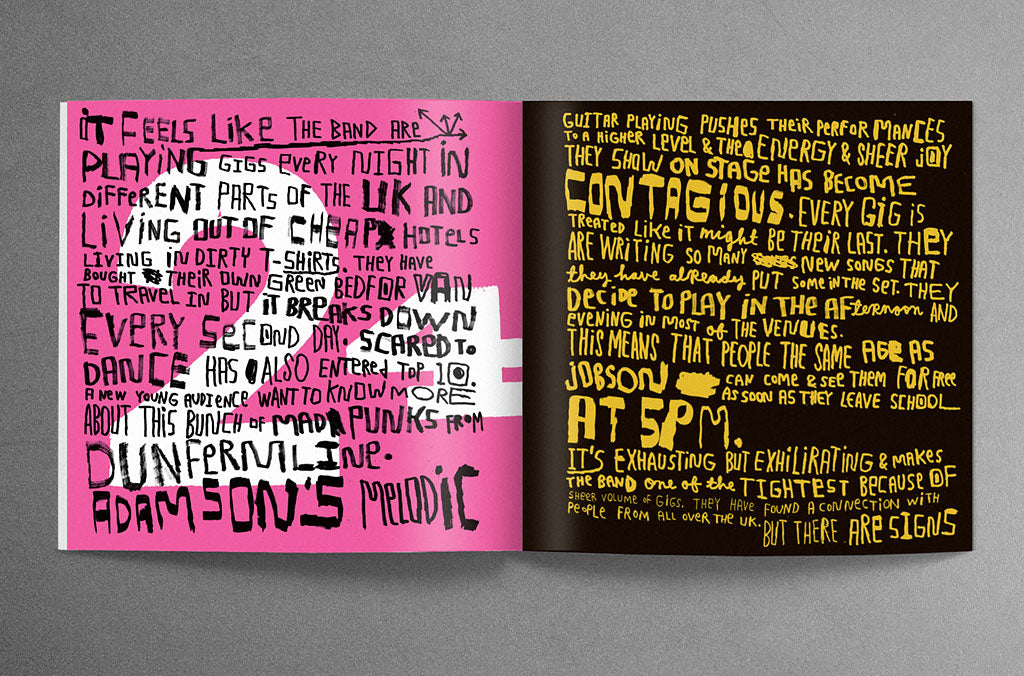 iT FEELS LiKE THE BAND ARE
PLAYING GIGS EVERY NIGHT IN
DiffERENT PARTS OF THE UK AND
LiViNG OUT OF CHEAP HOTELS
LIVING IN DIRTY T-SHIRTS. THEY HAVE
BOUGHT THEiR OWN GREEN BEDFOR VAN
TO TRAVEL IN BUT iT BREAKS DOWN
EVERY SECOND DAY. SCARED To
DANCE HAS ALSO ENTERED TOP 10.
A NEW YOUNG AUDIENCE WANT TO KNOW MORE
ABOUT THIS BUNCH OF MAD PUNKS FROM
DUNFERMLINe.
ADAMSON'S MELODiC
24
GUITAR PLAYING PUSHES THEiR PERFORMANCES
TO A HIGHER LEVEL & THE ENERGY & SHEER JOY
THEY SHOW ON STAGE HAS BECOME
CONTAGIOUS. EVERY GiG iS
TREATED LIKE iT might BE THEiR LAST. THEY
ARE WRITING SO MANY NEW SONGS THAT
they have already PUT SOME IN THE SET. THEY
DECiDE TO PLAY IN THE AFternoon AND
EVENING IN MOST of THE VENUES.
THIS MEANS THAT PEOPLE THE SAME AGE AS
JOBSON CAN COME & SEE THEM FOR FREE
AS SOON AS THEY LEAVE SCHOOL
AT 5PM.
IT'S EXHAUSTING BUT EXHILIRATING & MAKES
THE BAND ONE of the TIGHTEST BECAUSE OF
SHEER VOLUME OF GIGS. THEY HAVE FOUND A CONNECTION WITH
PEOPLE FROM ALL OVER THE UK.
BUT THERE ARE SIGNS